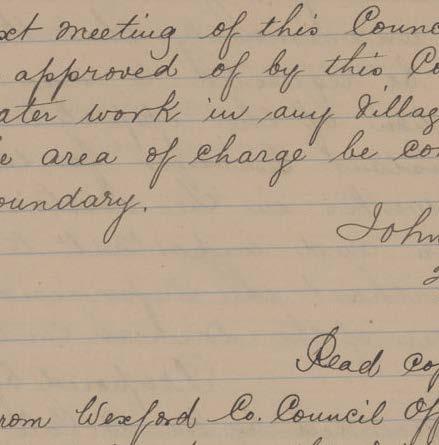 ext meeting of this Counc
approved of by this Co
ater work in any Villag
e area of charge be con
oundary.
John
Read cop
rom Wexford Co. Council Off